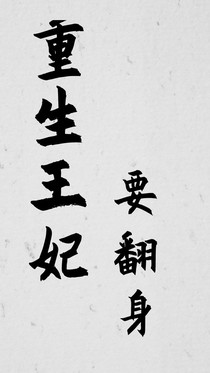 重生王妃
要翻身